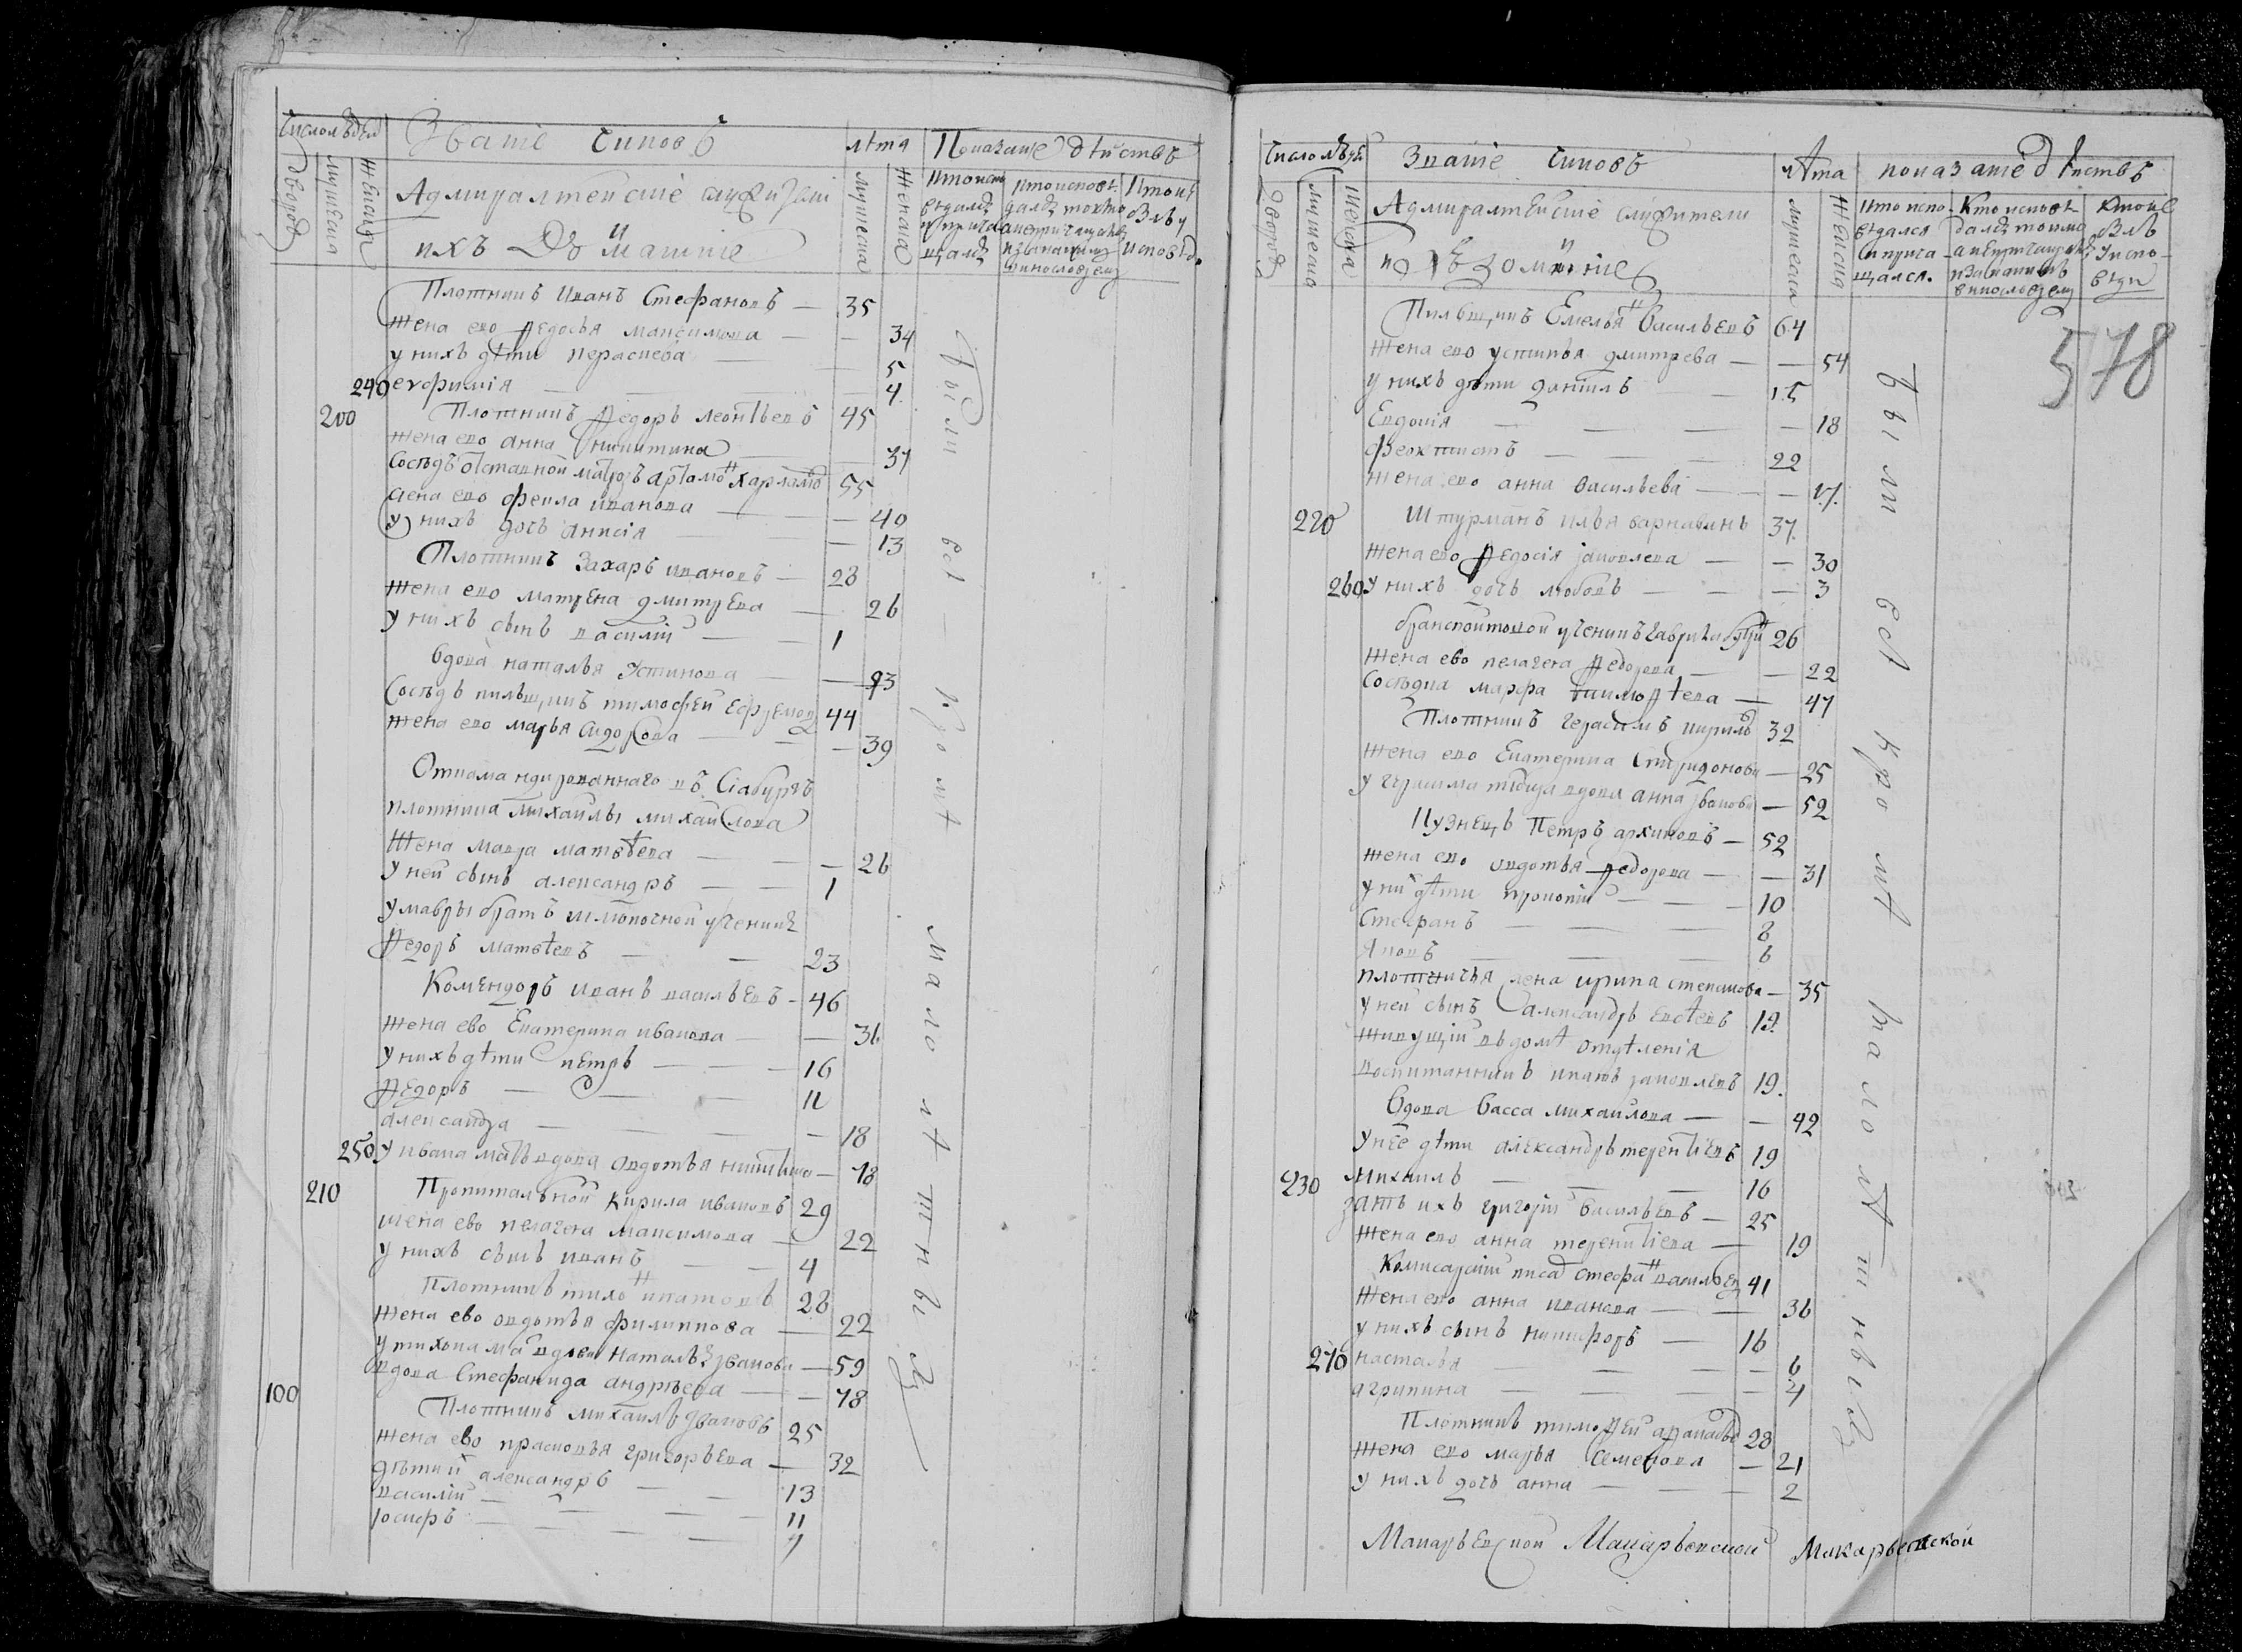 Число людей
Званіе чиновъ
лѣта
Показаніе дѣйствъ
дворовъ
мужеска
женска
Адмиралтейскіе служители
ихъ Домашніе
мужеска
женска
Кто исповѣдался и причащался
Кто исповѣдался токмо а не причащался и за какимъ винословіемъ
Кто не былъ у исповѣди
Плотникъ Иванъ Стефановъ — 35
жена ево Ѳедосья максимова — — 34
у нихъ дѣти параскева — 5
240 евфимія — — 4
200 Плотникъ Ѳедоръ леонтьевъ 45
жена ево анна никитина — 37
Сосѣдъ отставной матрозъ артамонъ харламовъ 55
жена ево фекла иванова — — 40
у нихъ дочь анисія — 13
Плотникъ Захаръ ивановъ — 28
жена ево матрена дмитрева — 26
у нихъ сынъ василій — — 1
Вдова наталья Устинова — — 93
Сосѣдъ пильщикъ тимофей Ефремовъ 44
жена ево марья сидорова — — — 39
Откамандированнаго въ
плотника михаилы михайлова
Жена мавра матвѣева — — — 26
у ней сынъ александръ — — 1
у мавры братъ шлюпочной ученикъ
Ѳедоръ матвѣевъ — — 23
Комендоръ иванъ васильевъ — 46
жена ево Екатерина иванова — — 36
у нихъ дѣти петръ — — — 16
Ѳедоръ — — — 11
александра — — — — 18
250 у ивана мать вдова овдотья никитина — 78
210 Пропитальной Кирила ивановъ 29
жена ево пелагея максимова — 22
у нихъ сынъ иванъ — — 4
Плотникъ тихонъ ипатовъ 28
жена ево овдотья филиппова — 22
у тихона мать вдова наталья иванова — 59
100 вдова Стефанида андрѣева — — 78
Плотникъ михаилъ ивановъ 25
жена ево прасковья григорьева — 32
дѣти ихъ александръ — — 13
василій — — — — 11
іосифъ — — — — 9
были всѣ кромѣ малолѣтныхъ
Число людей
Званіе чиновъ
лѣта
показаніе дѣйствъ
дворовъ
мужеска
женска
Адмиралтейскіе служители
и домашніе
мужеска
женска
Кто исповѣдался и причащался.
Кто исповѣдался токмо а не причащался и за какимъ винословіемъ
Кто не былъ у исповѣди
578
Пильщикъ Емельянъ Васильевъ 64
жена ево устинья дмитрева — — 54
у нихъ дѣти даниилъ — — 15
Евдокія — — — — 18
феоктистъ — — — 22
жена ево анна васильева — — — 17.
220 Штурманъ илья варнавинъ 37.
жена ево Ѳедосія яковлева — — 30
260 у нихъ дочь любовь — — — 3
ученикъ гаврила 26
жена ево пелагея Ѳедорова — — 22
Сосѣдка марфа тимоѳѣева — 47
Плотникъ герасимъ кириловъ 32
жена ево Екатерина Спиридонова — 25
у герасима вдова анна иванова — 52
Кузнецъ Петръ архиповъ — 52
жена ево овдотья Ѳедорова — — 31
у них дѣти прокопій — — — 10
Стефанъ — — — 8
Яковъ — — — 6
плотничья жена ирина степанова — 35
у ней сынъ александръ 12.
живущій въ домѣ отдѣленія
воспитанникъ яковлевъ 19.
Вдова Васса михайлова — — 42
у нее дѣти александръ терентіевъ 19
230 михаилъ — — — 16
зать ихъ григорій Васильевъ — 25
жена ево анна терентіева — 19
Комисарскій писарь стефанъ васильевъ 41
жена ево анна иванова — — 36
у нихъ сынъ никифоръ — 16
270 настасья — — — — 6
агрипина — — — — 4
Плотникъ тимоѳей аѳанасьевъ 28
жена ево марья Семенова — 21
у нихъ дочь анна — — — 2
были всѣ кромѣ малолѣтныхъ
Макарьевской Макарьевской Макарьевской